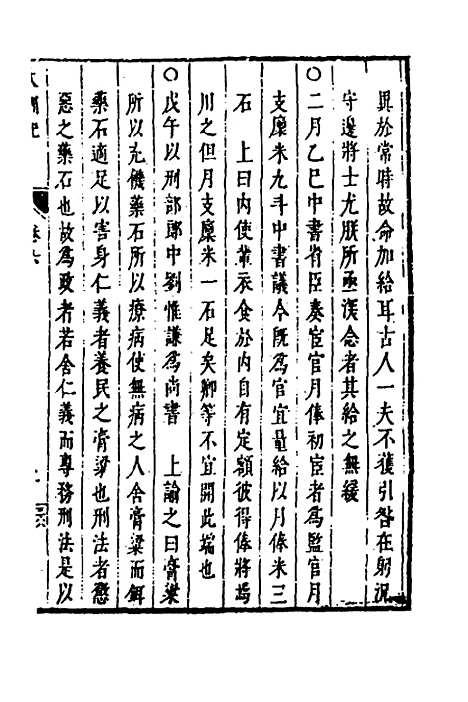 異於常時故命加給耳古人一夫不獲引咎在躬況
守邊將士尤朕所亟後念者其給之無緩
○二月乙巳中書省臣奏宦官月俸初宦者為監官月
支廩米九斗中書議今既為官宜量給以月俸米三
石　上曰內使輩衣食於內自有定額彼得俸將焉
用之但月支廩米一石足矣卿等不宜開此端也
○戊午以刑部郎中劉惟謙為尚書　上諭之曰膏粱
所以充饑藥石所以療病使無病之人舍膏粱而餌
藥石適足以害身仁義者養民之膏粱也刑法者懲
惡之藥石也故為政者若舍仁義而專務刑法是以
卷六